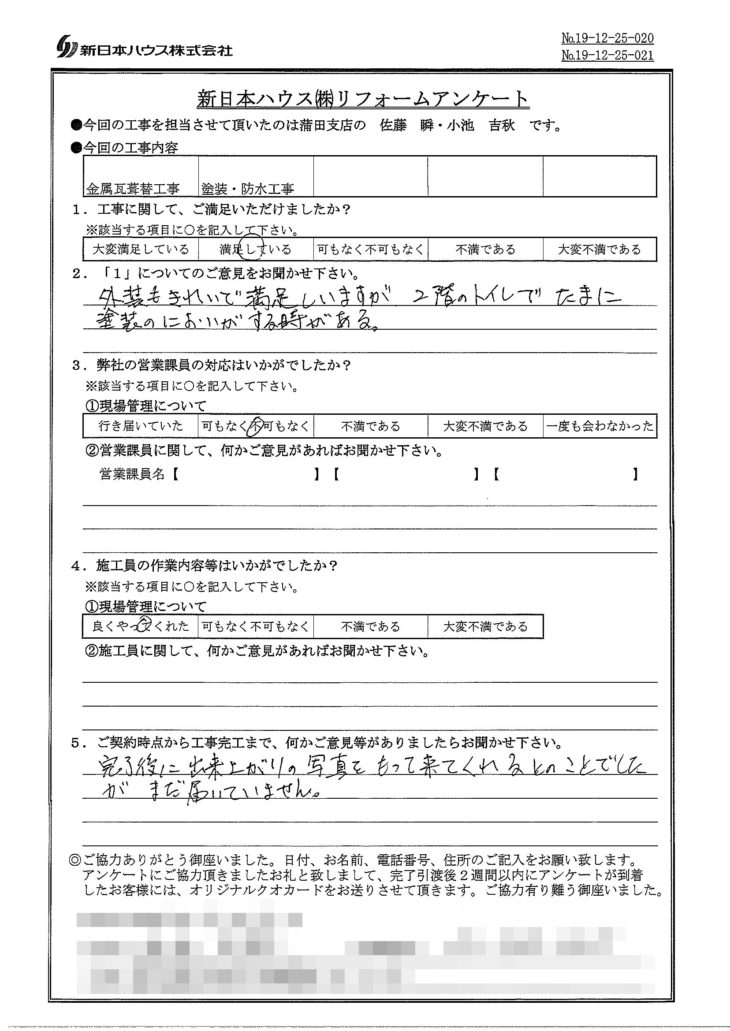 新日本ハウス株式会社
No.19-12-25-020
No.19-12-25-021
新日本ハウス㈱リフォームアンケート
●今回の工事を担当させて頂いたのは蒲田支店の 佐藤 瞬・小池 吉秋 です。
●今回の工事内容
金属瓦葺替工事 塗装・防水工事
1．工事に関して、ご満足いただけましたか？
※該当する項目に○を記入して下さい。
大変満足している 満足している 可もなく不可もなく 不満である 大変不満である
2．「1」についてのご意見をお聞かせ下さい。
外装もきれいで満足しいますが 2階のトイレで たまに
塗装のにおいがする時がある。
3．弊社の営業課員の対応はいかがでしたか？
※該当する項目に○を記入して下さい。
①現場管理について
行き届いていた 可もなく不可もなく 不満である 大変不満である 一度も会わなかった
②営業課員に関して、何かご意見があればお聞かせ下さい。
営業課員名【 】【 】【 】
4．施工員の作業内容等はいかがでしたか？
※該当する項目に○を記入して下さい。
①現場管理について
良くやってくれた 可もなく不可もなく 不満である 大変不満である
②施工員に関して、何かご意見があればお聞かせ下さい。
5．ご契約時点から工事完工まで、何かご意見等がありましたらお聞かせ下さい。
完了後に出来上がりの写真をもって来てくれるとのことでした
が まだ届いていません。
◎ご協力ありがとう御座いました。日付、お名前、電話番号、住所のご記入をお願い致します。
アンケートにご協力頂きましたお礼と致しまして、完了引渡後２週間以内にアンケートが到着
したお客様には、オリジナルクオカードをお送りさせて頂きます。ご協力有り難う御座いました。